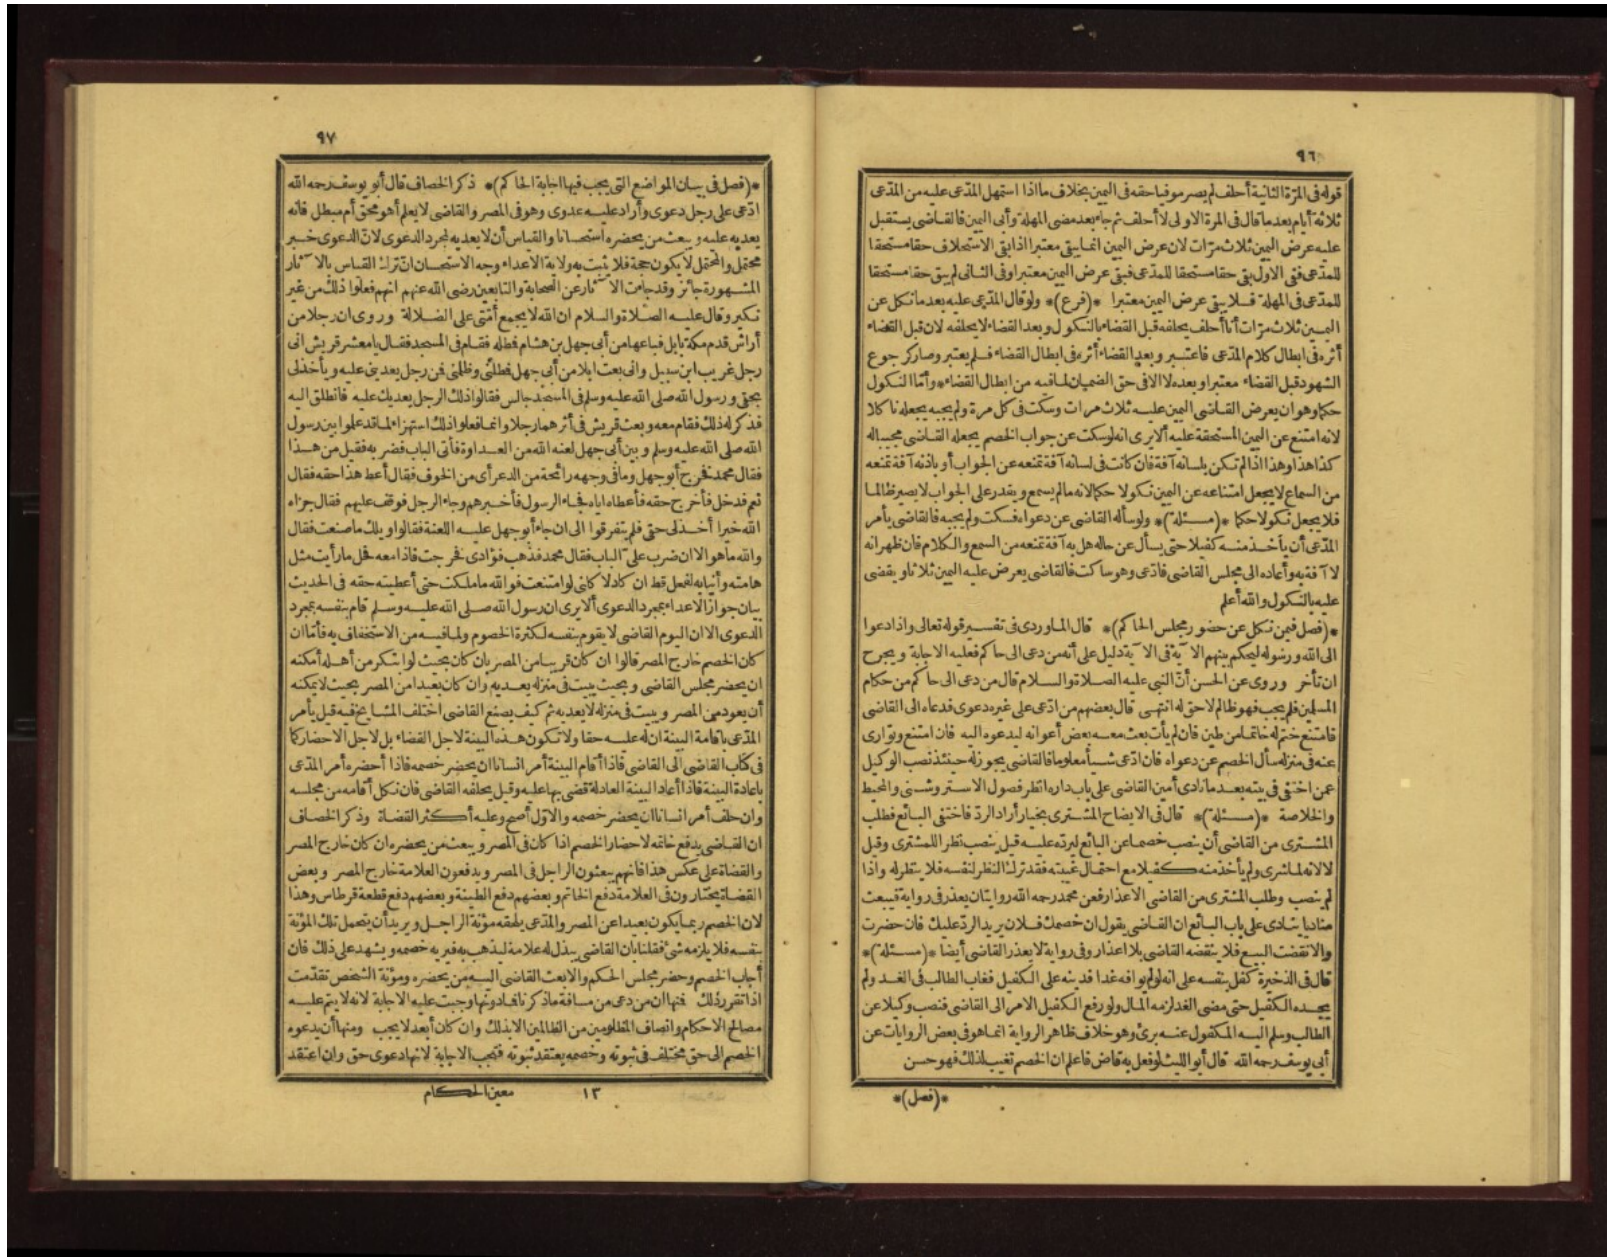 ٩٦
قوله فى المرّة الثانية أحلف لم يصر موفيا حقه فى اليمين بخلاف مااذا استمهل المدّعى عليه من المدّعى
ثلاثة أيام بعدما قال فى المرة الاولى لا أحلف ثم جاء بعد مضى المهلة وأبى اليمين فالقاضى يستقبل
عليه عرض اليمين ثلاث مرّات لان عرض اليمين انما يبقى معتبرا اذا بقى الاستحلاف حقا مستحقا
للمدّعى ففى الاول بقى حقا مستحقا للمدّعى فبقى عرض اليمين معتبرا وفى الثانى لم يبق حقا مستحقا
للمدّعى فى المهلة فلا يبقى عرض اليمين معتبرا *(فرع)* ولو قال المدّعى عليه بعدما نكل عن
اليمين ثلاث مرّات أنا أحلف يحلفه قبل القضاء بالنكول وبعد القضاء لا يحلفه لان قبل القضاء
أثره فى ابطال كلام المدّعى فاعتبر وبعد القضاء أثره فى ابطال القضاء فلم يعتبر وصار كرجوع
الشهود قبل القضاء معتبرا وبعده لا الا فى حق الضمان لمافيه من ابطال القضاء * وأمّا النكول
حكما وهو ان يعرض القاضى اليمين عليه ثلاث مرات وسكت فى كل مرة ولم يجبه يجعله ناكلا
لانه امتنع عن اليمين المستحقة عليه ألا يرى انه لو سكت عن جواب الخصم يجعله القاضى مجيبا له
كذا هذا وهذا اذا لم تكن بلسانه آفة فان كانت فى لسانه آفة تمنعه عن الجواب أو باذنه آفة تمنعه
من السماع لا يجعل امتناعه عن اليمين نكولا حكما لانه مالم يسمع ويقدر على الجواب لا يصير ظالما
فلا يجعل نكولا حكما *(مسئلة)* ولو سأله القاضى عن دعواه فسكت ولم يجبه فالقاضى يأمر
المدّعى أن يأخذ منه كفيلا حتى يسأل عن حاله هل به آفة تمنعه من السمع والكلام فان ظهر انه
لا آفة به وأعاده الى مجلس القاضى فادّعى وهو ساكت فالقاضى يعرض عليه اليمين ثلاثا ويقضى
عليه بالنكول والله أعلم
*(فصل فيمن نكل عن حضور مجلس الحاكم)* قال الماوردى فى تفسير قوله تعالى واذا دعوا
الى الله ورسوله ليحكم بينهم الآية فى الآية دليل على أنه من دعى الى حاكم فعليه الاجابة ويجرح
ان تأخر وروى عن الحسن أنّ النبى عليه الصلاة والسلام قال من دعى الى حاكم من حكام
المسلمين فلم يجب فهو ظالم لا حق له انتهى قال بعضهم من ادّعى على غيره دعوى فدعاه الى القاضى
فامتنع ختم له خاتما من طين فان لم يأت بعث معه بعض أعوانه ليدعوه اليه فان امتنع وتوارى
عنه فى منزله سأل الخصم عن دعواه فان ادّعى شيأ معلوما فالقاضى يجوز له حينئذ نصب الوكيل
عمن اختفى فى بيته بعد مانادى أمين القاضى على باب داره انظر فصول الاستروشنى والمحيط
والخلاصة *(مسئلة)* قال فى الايضاح المشترى بخيار أراد الردّ فاختفى البائع فطلب
المشترى من القاضى أن ينصب خصما عن البائع ليرده عليه قيل ينصب نظرا للمشترى وقيل
لا لانه لما شرى ولم يأخذ منه كفيلا مع احتمال غيبته فقد ترك النظر لنفسه فلا ينظر له واذا
لم ينصب وطلب المشترى من القاضى الاعذار فعن محمد رحمه الله روايتان يعذر فى رواية فيبعث
مناديا ينادى على باب البائع ان القاضى يقول ان خصمك فلان يريد الردّ عليك فان حضرت
والا نقضت البيع فلا ينقضه القاضى بلا اعذار وفى رواية لا يعذر القاضى أيضا *(مسئلة)*
قال فى الذخيرة كفل بنفسه على انه لو لم يوافه غدا فدينه على الكفيل فغاب الطالب فى الغد ولم
يجده الكفيل حتى مضى الغد لزمه المال ولو رفع الكفيل الامر الى القاضى فنصب وكيلا عن
الطالب وسلم اليه المكفول عنه برئ وهو خلاف ظاهر الرواية انما هو فى بعض الروايات عن
أبى يوسف رحمه الله قال أبو الليث لو فعل به قاض فاعلم ان الخصم تغيب لذلك فهو حسن
*(فصل)*
٩٧
*(فصل فى بيان المواضع التى يجب فيها اجابة الحاكم)* ذكر الخصاف قال أبو يوسف رحمه الله
ادّعى على رجل دعوى وأراد عليه عدوى وهو فى المصر والقاضى لا يعلم أهو محق أم مبطل فانه
يعديه عليه ويبعث من يحضره استحسانا والقياس أن لا يعديه لمجرد الدعوى لانّ الدعوى خبر
محتمل والمحتمل لا يكون حجة فلا يثبت به ولاية الاعداء وجه الاستحسان انّ ترك القياس بالآثار
المشهورة جائز وقد جاءت الآثار عن الصحابة والتابعين رضى الله عنهم انهم فعلوا ذلك من غير
نكير وقال عليه الصلاة والسلام ان الله لا يجمع أمّتى على الضلالة وروى ان رجلا من
أراش قدم مكة بابل فباعها من أبى جهل بن هشام فمطله فقام فى المسجد فقال يا معشر قريش انى
رجل غريب ابن سبيل وانى بعت ابلا من أبى جهل فمطلنى وظلمنى فمن رجل يعدينى عليه ويأخذ لى
بحقى ورسول الله صلى الله عليه وسلم فى المسجد جالس فقالوا ذلك الرجل يعديك عليه فانطلق اليه
فذكر له ذلك فقام معه وبعث قريش فى أثرهما رجلا وانما فعلوا ذلك استهزاء لما قد علموا بين رسول
الله صلى الله عليه وسلم وبين أبى جهل لعنه الله من العداوة فأتى الباب فضربه فقيل من هذا
فقال محمد فخرج أبو جهل وما فى وجهه رائحة من الدعر أى من الخوف فقال أعط هذا حقه فقال
نعم فدخل فأخرج حقه فأعطاه اياه فجاء الرسول فأخبرهم وجاء الرجل فوقف عليهم فقال جزاه
الله خيرا أخذ لى حقى فلم يتفرقوا الى ان جاء أبو جهل عليه اللعنة فقالوا ويلك ما صنعت فقال
والله ما هو الا ان ضرب علىّ الباب فقال محمد فذهب فؤادى فخرجت فاذا معه فحل مارأيت مثل
هامته وأنيابه لفحل قط ان كاد لاكلنى لو امتنعت فوالله ما ملكت حتى أعطيته حقه فى الحديث
بيان جواز الاعداء بمجرد الدعوى ألا يرى ان رسول الله صلى الله عليه وسلم قام بنفسه بمجرد
الدعوى الا ان اليوم القاضى لا يقوم بنفسه لكثرة الخصوم ولما فيه من الاستخفاف به فأمّا ان
كان الخصم خارج المصر قالوا ان كان قريبا من المصر بان كان بحيث لو ابتكر من أهله أمكنه
ان يحضر مجلس القاضى وبحيث يبيت فى منزله يعديه وان كان بعيدا من المصر بحيث لا يمكنه
أن يعود من المصر ويبيت فى منزله لا يعديه ثم كيف يصنع القاضى اختلف المشايخ فيه قيل يأمر
المدّعى باقامة البينة ان له عليه حقا ولا تكون هذه البينة لاجل القضاء بل لاجل الاحضار كما
فى كتاب القاضى الى القاضى فاذا أقام البينة أمر انسانا ان يحضر خصمه فاذا أحضره أمر المدّعى
باعادة البينة فاذا أعاد البينة العادلة قضى بها عليه وقيل يحلفه القاضى فان نكل أقامه من مجلسه
وان حلف أمر انسانا ان يحضر خصمه والاوّل أصح وعليه أكثر القضاة وذكر الخصاف
ان القاضى يدفع خاتمه لاحضار الخصم اذا كان فى المصر ويبعث من يحضره ان كان خارج المصر
والقضاة على عكس هذا فانهم يبعثون الراجل فى المصر ويدفعون العلامة خارج المصر وبعض
القضاة يختارون فى العلامة دفع الخاتم وبعضهم دفع الطينة وبعضهم دفع قطعة قرطاس وهذا
لان الخصم ربما يكون بعيدا عن المصر والمدّعى يلحقه مؤنة الراجل ويريد أن يتحمل تلك المؤنة
بنفسه فلا يلزمه شئ فقلنا بان القاضى يبذل له علامة ليذهب به فيريه خصمه ويشهد على ذلك فان
أجاب الخصم وحضر مجلس الحكم والا بعث القاضى اليه من يحضره ومؤنة الشخص تقدّمت
اذا تقرر ذلك فنها ان من دعى من مسافة ماذكرنا فما دونها وجبت عليه الاجابة لانه لا يتم عليه
مصالح الاحكام وانصاف المظلومين من الظالمين الا بذلك وان كان أبعد لا يجب ومنها أن يدعوه
الخصم الى حق مختلف فى ثبوته وخصمه يعتقد ثبوته فتجب الاجابة لانها دعوى حق وان اعتقد
١٣ معين الحكام